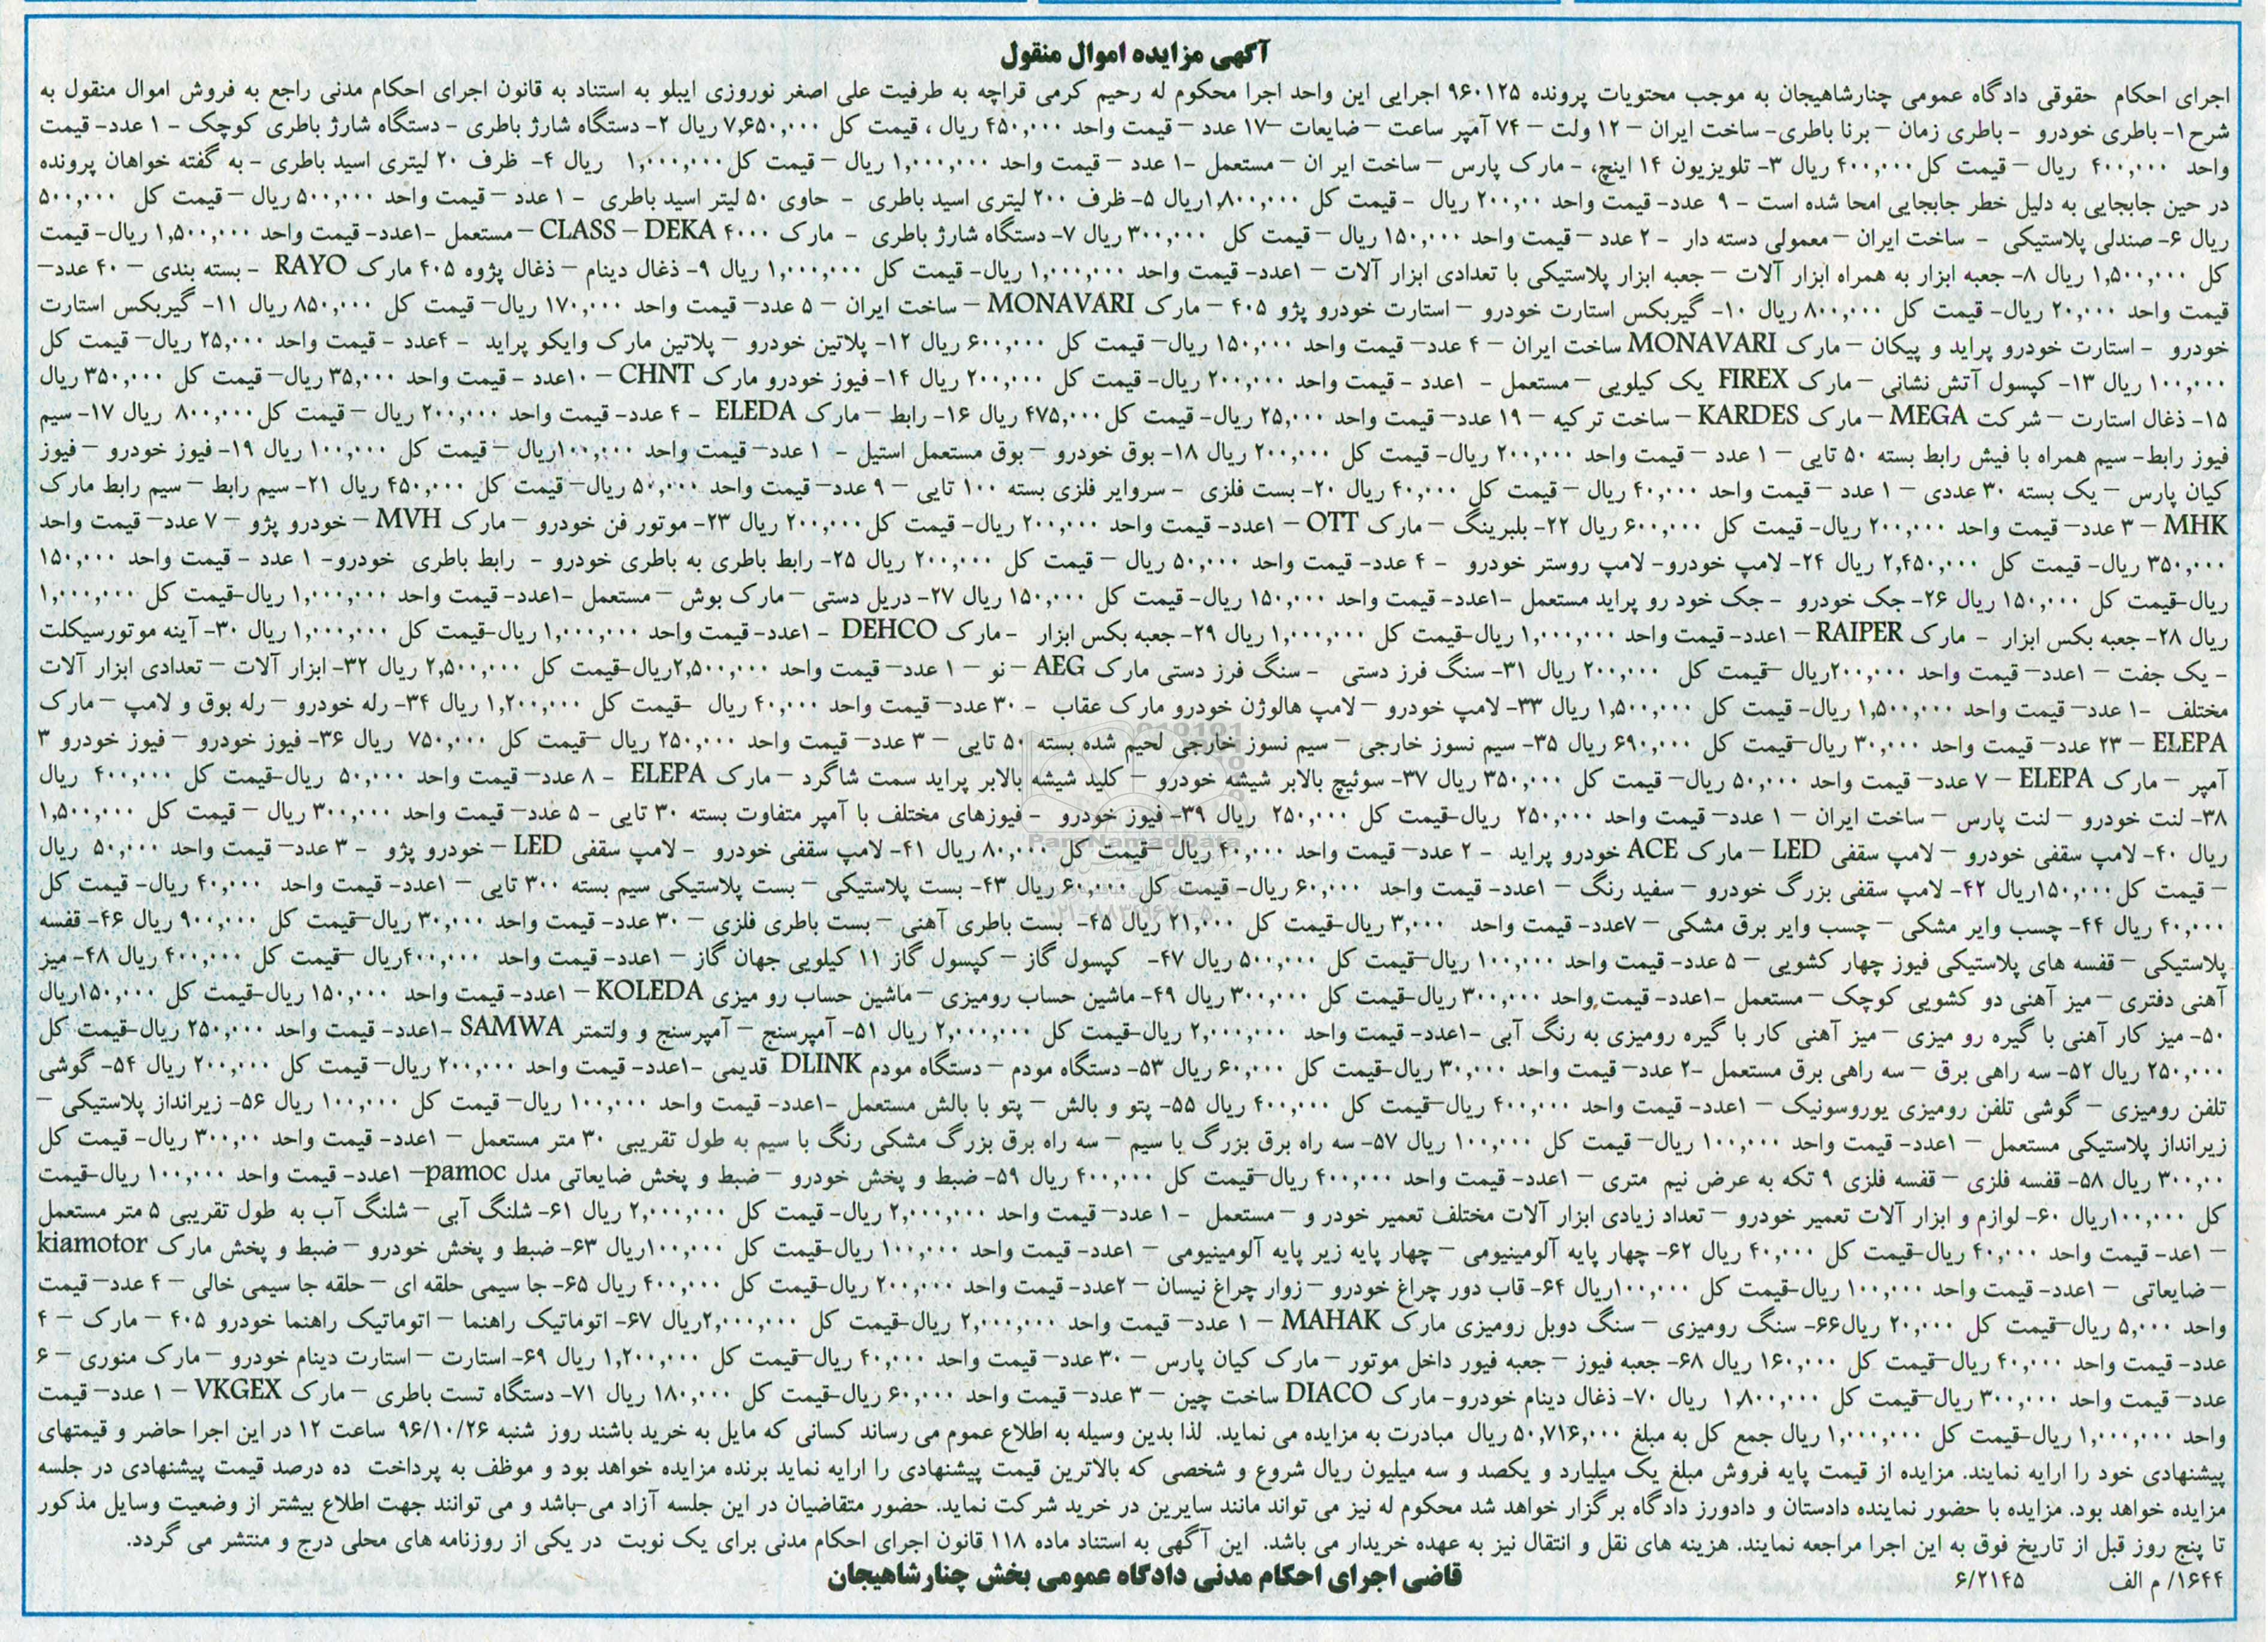 آگهی مزایده اموال منقول
اجرای احکام حقوقی دادگاه عمومی چنارشاهیجان به موجب محتویات پرونده ۹۶۰۱۲۵ اجرایی این واحد اجرا محکوم له رحیم کرمی قراچه به طرفیت علی اصغر نوروزی ایبلو به استناد به قانون اجرای احکام مدنی راجع به فروش اموال منقول به
شرح ۱- باطری خودرو - باطری زمان – برنا باطری- ساخت ایران – ۱۲ ولت – ۷۴ آمپر ساعت – ضایعات –۱۷ عدد – قیمت واحد ۴۵۰,۰۰۰ ریال ، قیمت کل ۷,۶۵۰,۰۰۰ ریال ۲- دستگاه شارژ باطری – دستگاه شارژ باطری کوچک – ۱ عدد- قیمت
واحد ۴۰۰,۰۰۰ ریال – قیمت کل ۴۰۰,۰۰۰ ریال ۳- تلویزیون ۱۴ اینچ، - مارک پارس – ساخت ایر ان – مستعمل –۱ عدد – قیمت واحد ۱,۰۰۰,۰۰۰ ریال – قیمت کل ۱,۰۰۰,۰۰۰ ریال ۴- ظرف ۲۰ لیتری اسید باطری - به گفته خواهان پرونده
در حین جابجایی به دلیل خطر جابجایی امحا شده است - ۹ عدد- قیمت واحد ۲۰۰,۰۰ ریال - قیمت کل ۱,۸۰۰,۰۰۰ریال ۵- ظرف ۲۰۰ لیتری اسید باطری - حاوی ۵۰ لیتر اسید باطری - ۱ عدد – قیمت واحد ۵۰۰,۰۰۰ ریال – قیمت کل ۵۰۰,۰۰۰
ریال ۶- صندلی پلاستیکی - ساخت ایران – معمولی دسته دار - ۲ عدد – قیمت واحد ۱۵۰,۰۰۰ ریال – قیمت کل ۳۰۰,۰۰۰ ریال ۷- دستگاه شارژ باطری - مارک CLASS – DEKA ۴۰۰۰ – مستعمل –۱عدد- قیمت واحد ۱,۵۰۰,۰۰۰ ریال- قیمت
کل ۱,۵۰۰,۰۰۰ ریال ۸- جعبه ابزار به همراه ابزار آلات – جعبه ابزار پلاستیکی با تعدادی ابزار آلات – ۱عدد- قیمت واحد ۱,۰۰۰,۰۰۰ ریال- قیمت کل ۱,۰۰۰,۰۰۰ ریال ۹- ذغال دینام – ذغال پژوه ۴۰۵ مارک RAYO - بسته بندی – ۴۰ عدد–
قیمت واحد ۲۰,۰۰۰ ریال- قیمت کل ۸۰۰,۰۰۰ ریال ۱۰- گیربکس استارت خودرو – استارت خودرو پژو ۴۰۵ – مارک MONAVARI – ساخت ایران – ۵ عدد– قیمت واحد ۱۷۰,۰۰۰ ریال– قیمت کل ۸۵۰,۰۰۰ ریال ۱۱- گیربکس استارت
خودرو - استارت خودرو پراید و پیکان – مارک MONAVARI ساخت ایران – ۴ عدد– قیمت واحد ۱۵۰,۰۰۰ ریال– قیمت کل ۶۰۰,۰۰۰ ریال ۱۲- پلاتین خودرو – پلاتین مارک وایکو پراید - ۴عدد - قیمت واحد ۲۵,۰۰۰ ریال– قیمت کل
۱۰۰,۰۰۰ ریال ۱۳- کپسول آتش نشانی – مارک FIREX یک کیلویی – مستعمل - ۱عدد - قیمت واحد ۲۰۰,۰۰۰ ریال- قیمت کل ۲۰۰,۰۰۰ ریال ۱۴- فیوز خودرو مارک CHNT – ۱۰عدد - قیمت واحد ۳۵,۰۰۰ ریال– قیمت کل ۳۵۰,۰۰۰ ریال
۱۵- ذغال استارت – شرکت MEGA – مارک KARDES – ساخت ترکیه – ۱۹ عدد- قیمت واحد ۲۵,۰۰۰ ریال- قیمت کل ۴۷۵,۰۰۰ ریال ۱۶- رابط – مارک ELEDA - ۴ عدد- قیمت واحد ۲۰۰,۰۰۰ ریال – قیمت کل ۸۰۰,۰۰۰ ریال ۱۷- سیم
فیوز رابط- سیم همراه با فیش رابط بسته ۵۰ تایی – ۱ عدد – قیمت واحد ۲۰۰,۰۰۰ ریال- قیمت کل ۲۰۰,۰۰۰ ریال ۱۸- بوق خودرو – بوق مستعمل استیل - ۱ عدد– قیمت واحد ۱۰۰,۰۰۰ریال – قیمت کل ۱۰۰,۰۰۰ ریال ۱۹- فیوز خودرو – فیوز
کیان پارس – یک بسته ۳۰ عددی – ۱ عدد – قیمت واحد ۴۰,۰۰۰ ریال – قیمت کل ۴۰,۰۰۰ ریال ۲۰- بست فلزی - سروایر فلزی بسته ۱۰۰ تایی – ۹ عدد– قیمت واحد ۵۰,۰۰۰ ریال– قیمت کل ۴۵۰,۰۰۰ ریال ۲۱- سیم رابط – سیم رابط مارک
MHK – ۳ عدد– قیمت واحد ۲۰۰,۰۰۰ ریال- قیمت کل ۶۰۰,۰۰۰ ریال ۲۲- بلبرینگ – مارک OTT – ۱عدد- قیمت واحد ۲۰۰,۰۰۰ ریال- قیمت کل ۲۰۰,۰۰۰ ریال ۲۳- موتور فن خودرو – مارک MVH – خودرو پژو – ۷ عدد– قیمت واحد
۳۵۰,۰۰۰ ریال- قیمت کل ۲,۴۵۰,۰۰۰ ریال ۲۴- لامپ خودرو- لامپ روستر خودرو - ۴ عدد- قیمت واحد ۵۰,۰۰۰ ریال – قیمت کل ۲۰۰,۰۰۰ ریال ۲۵- رابط باطری به باطری خودرو - رابط باطری خودرو- ۱ عدد - قیمت واحد ۱۵۰,۰۰۰
ریال-قیمت کل ۱۵۰,۰۰۰ ریال ۲۶- جک خودرو - جک خود رو پراید مستعمل –۱عدد- قیمت واحد ۱۵۰,۰۰۰ ریال- قیمت کل ۱۵۰,۰۰۰ ریال ۲۷- دریل دستی – مارک بوش – مستعمل –۱عدد- قیمت واحد ۱,۰۰۰,۰۰۰ ریال-قیمت کل ۱,۰۰۰,۰۰۰
ریال ۲۸- جعبه بکس ابزار - مارک RAIPER – ۱عدد- قیمت واحد ۱,۰۰۰,۰۰۰ ریال-قیمت کل ۱,۰۰۰,۰۰۰ ریال ۲۹- جعبه بکس ابزار - مارک DEHCO - ۱عدد- قیمت واحد ۱,۰۰۰,۰۰۰ ریال-قیمت کل ۱,۰۰۰,۰۰۰ ریال ۳۰- آینه موتورسیکلت
- یک جفت – ۱عدد– قیمت واحد ۲۰۰,۰۰۰ریال –قیمت کل ۲۰۰,۰۰۰ ریال ۳۱- سنگ فرز دستی - سنگ فرز دستی مارک AEG – نو – ۱ عدد– قیمت واحد ۲,۵۰۰,۰۰۰ریال-قیمت کل ۲,۵۰۰,۰۰۰ ریال ۳۲- ابزار آلات – تعدادی ابزار آلات
مختلف -۱ عدد– قیمت واحد ۱,۵۰۰,۰۰۰ ریال- قیمت کل ۱,۵۰۰,۰۰۰ ریال ۳۳- لامپ خودرو – لامپ هالوژن خودرو مارک عقاب - ۳۰ عدد– قیمت واحد ۴۰,۰۰۰ ریال -قیمت کل ۱,۲۰۰,۰۰۰ ریال ۳۴- رله خودرو – رله بوق و لامپ – مارک
ELEPA – ۲۳ عدد– قیمت واحد ۳۰,۰۰۰ ریال–قیمت کل ۶۹۰,۰۰۰ ریال ۳۵- سیم نسوز خارجی – سیم نسوز خارجی لحیم شده بسته ۵۰ تایی – ۳ عدد– قیمت واحد ۲۵۰,۰۰۰ ریال –قیمت کل ۷۵۰,۰۰۰ ریال ۳۶- فیوز خودرو – فیوز خودرو ۳
آمپر – مارک ELEPA – ۷ عدد– قیمت واحد ۵۰,۰۰۰ ریال– قیمت کل ۳۵۰,۰۰۰ ریال ۳۷- سوئیچ بالابر شیشه خودرو – کلید شیشه بالابر پراید سمت شاگرد – مارک ELEPA - ۸ عدد– قیمت واحد ۵۰,۰۰۰ ریال-قیمت کل ۴۰۰,۰۰۰ ریال
۳۸- لنت خودرو – لنت پارس – ساخت ایران – ۱ عدد– قیمت واحد ۲۵۰,۰۰۰ ریال-قیمت کل ۲۵۰,۰۰۰ ریال ۳۹- فیوز خودرو - فیوزهای مختلف با آمپر متفاوت بسته ۳۰ تایی - ۵ عدد– قیمت واحد ۳۰۰,۰۰۰ ریال – قیمت کل ۱,۵۰۰,۰۰۰
ریال ۴۰- لامپ سقفی خودرو – لامپ سقفی LED – مارک ACE خودرو پراید - ۲ عدد– قیمت واحد ۴۰,۰۰۰ ریال –قیمت کل ۸۰,۰۰۰ ریال ۴۱- لامپ سقفی خودرو - لامپ سقفی LED – خودرو پژو - ۳ عدد– قیمت واحد ۵۰,۰۰۰ ریال
– قیمت کل ۱۵۰,۰۰۰ریال ۴۲- لامپ سقفی بزرگ خودرو – سفید رنگ – ۱عدد- قیمت واحد ۶۰,۰۰۰ ریال- قیمت کل ۶۰,۰۰۰ ریال ۴۳- بست پلاستیکی – بست پلاستیکی سیم بسته ۳۰۰ تایی – ۱عدد- قیمت واحد ۴۰,۰۰۰ ریال- قیمت کل
۴۰,۰۰۰ ریال ۴۴- چسب وایر مشکی – چسب وایر برق مشکی – ۷عدد- قیمت واحد ۳,۰۰۰ ریال-قیمت کل ۲۱,۰۰۰ ریال ۴۵- بست باطری آهنی – بست باطری فلزی – ۳۰ عدد- قیمت واحد ۳۰,۰۰۰ ریال–قیمت کل ۹۰۰,۰۰۰ ریال ۴۶- قفسه
پلاستیکی – قفسه های پلاستیکی فیوز چهار کشویی – ۵ عدد- قیمت واحد ۱۰۰,۰۰۰ ریال–قیمت کل ۵۰۰,۰۰۰ ریال ۴۷- کپسول گاز – کپسول گاز ۱۱ کیلویی جهان گاز – ۱عدد- قیمت واحد ۴۰۰,۰۰۰ریال –قیمت کل ۴۰۰,۰۰۰ ریال ۴۸- میز
آهنی دفتری – میز آهنی دو کشویی کوچک – مستعمل –۱عدد- قیمت واحد ۳۰۰,۰۰۰ ریال-قیمت کل ۳۰۰,۰۰۰ ریال ۴۹- ماشین حساب رومیزی – ماشین حساب رو میزی KOLEDA – ۱عدد- قیمت واحد ۱۵۰,۰۰۰ ریال-قیمت کل ۱۵۰,۰۰۰ریال
۵۰- میز کار آهنی با گیره رو میزی – میز آهنی کار با گیره رومیزی به رنگ آبی –۱عدد- قیمت واحد ۲,۰۰۰,۰۰۰ ریال-قیمت کل ۲,۰۰۰,۰۰۰ ریال ۵۱- آمپرسنج – آمپرسنج و ولتمتر SAMWA –۱عدد- قیمت واحد ۲۵۰,۰۰۰ ریال-قیمت کل
۲۵۰,۰۰۰ ریال ۵۲- سه راهی برق – سه راهی برق مستعمل –۲ عدد– قیمت واحد ۳۰,۰۰۰ ریال-قیمت کل ۶۰,۰۰۰ ریال ۵۳- دستگاه مودم – دستگاه مودم DLINK قدیمی –۱عدد- قیمت واحد ۲۰۰,۰۰۰ ریال– قیمت کل ۲۰۰,۰۰۰ ریال ۵۴- گوشی
تلفن رومیزی – گوشی تلفن رومیزی یوروسونیک – ۱عدد- قیمت واحد ۴۰۰,۰۰۰ ریال–قیمت کل ۴۰۰,۰۰۰ ریال ۵۵- پتو و بالش – پتو با بالش مستعمل –۱عدد- قیمت واحد ۱۰۰,۰۰۰ ریال– قیمت کل ۱۰۰,۰۰۰ ریال ۵۶- زیرانداز پلاستیکی –
زیرانداز پلاستیکی مستعمل – ۱عدد- قیمت واحد ۱۰۰,۰۰۰ ریال– قیمت کل ۱۰۰,۰۰۰ ریال ۵۷- سه راه برق بزرگ با سیم – سه راه برق بزرگ مشکی رنگ با سیم به طول تقریبی ۳۰ متر مستعمل – ۱عدد- قیمت واحد ۳۰۰,۰۰ ریال- قیمت کل
۳۰۰,۰۰ ریال ۵۸- قفسه فلزی – قفسه فلزی ۹ تکه به عرض نیم متری – ۱عدد- قیمت واحد ۴۰۰,۰۰۰ ریال–قیمت کل ۴۰۰,۰۰۰ ریال ۵۹- ضبط و پخش خودرو – ضبط و پخش ضایعاتی مدل pamoc– ۱عدد- قیمت واحد ۱۰۰,۰۰۰ ریال-قیمت
کل ۱۰۰,۰۰۰ریال ۶۰- لوازم و ابزار آلات تعمیر خودرو – تعداد زیادی ابزار آلات مختلف تعمیر خودر و – مستعمل - ۱ عدد– قیمت واحد ۲,۰۰۰,۰۰۰ ریال- قیمت کل ۲,۰۰۰,۰۰۰ ریال ۶۱- شلنگ آبی – شلنگ آب به طول تقریبی ۵ متر مستعمل
– ۱عد- قیمت واحد ۴۰,۰۰۰ ریال-قیمت کل ۴۰,۰۰۰ ریال ۶۲- چهار پایه آلومینیومی – چهار پایه زیر پایه آلومینیومی – ۱عدد- قیمت واحد ۱۰۰,۰۰۰ ریال-قیمت کل ۱۰۰,۰۰۰ریال ۶۳- ضبط و پخش خودرو – ضبط و پخش مارک kiamotor
– ضایعاتی – ۱عدد- قیمت واحد ۱۰۰,۰۰۰ ریال-قیمت کل ۱۰۰,۰۰۰ریال ۶۴- قاب دور چراغ خودرو – زوار چراغ نیسان – ۲عدد- قیمت واحد ۲۰۰,۰۰۰ ریال-قیمت کل ۴۰۰,۰۰۰ ریال ۶۵- جا سیمی حلقه ای – حلقه جا سیمی خالی – ۴ عدد– قیمت
واحد ۵,۰۰۰ ریال-قیمت کل ۲۰,۰۰۰ ریال۶۶- سنگ رومیزی – سنگ دوبل رومیزی مارک MAHAK – ۱ عدد– قیمت واحد ۲,۰۰۰,۰۰۰ ریال-قیمت کل ۲,۰۰۰,۰۰۰ریال ۶۷- اتوماتیک راهنما – اتوماتیک راهنما خودرو ۴۰۵ – مارک – ۴
عدد- قیمت واحد ۴۰,۰۰۰ ریال–قیمت کل ۱۶۰,۰۰۰ ریال ۶۸- جعبه فیوز – جعبه فیور داخل موتور – مارک کیان پارس – ۳۰ عدد– قیمت واحد ۴۰,۰۰۰ ریال–قیمت کل ۱,۲۰۰,۰۰۰ ریال ۶۹- استارت – استارت دینام خودرو – مارک منوری – ۶
عدد– قیمت واحد ۳۰۰,۰۰۰ ریال–قیمت کل ۱,۸۰۰,۰۰۰ ریال ۷۰- ذغال دینام خودرو- مارک DIACO ساخت چین – ۳ عدد– قیمت واحد ۶۰,۰۰۰ ریال-قیمت کل ۱۸۰,۰۰۰ ریال ۷۱- دستگاه تست باطری – مارک VKGEX – ۱ عدد– قیمت
واحد ۱,۰۰۰,۰۰۰ ریال-قیمت کل ۱,۰۰۰,۰۰۰ ریال جمع کل به مبلغ ۵۰,۷۱۶,۰۰۰ ریال مبادرت به مزایده می نماید. لذا بدین وسیله به اطلاع عموم می رساند کسانی که مایل به خرید باشند روز شنبه ۹۶/۱۰/۲۶ ساعت ۱۲ در این اجرا حاضر و قیمتهای
پیشنهادی خود را ارایه نمایند. مزایده از قیمت پایه فروش مبلغ یک میلیارد و یکصد و سه میلیون ریال شروع و شخصی که بالاترین قیمت پیشنهادی را ارایه نماید برنده مزایده خواهد بود و موظف به پرداخت ده درصد قیمت پیشنهادی در جلسه
مزایده خواهد بود. مزایده با حضور نماینده دادستان و دادورز دادگاه برگزار خواهد شد محکوم له نیز می تواند مانند سایرین در خرید شرکت نماید. حضور متقاضیان در این جلسه آزاد می-باشد و می توانند جهت اطلاع بیشتر از وضعیت وسایل مذکور
تا پنج روز قبل از تاریخ فوق به این اجرا مراجعه نمایند. هزینه های نقل و انتقال نیز به عهده خریدار می باشد. این آگهی به استناد ماده ۱۱۸ قانون اجرای احکام مدنی برای یک نوبت در یکی از روزنامه های محلی درج و منتشر می گردد.
قاضی اجرای احکام مدنی دادگاه عمومی بخش چنارشاهیجان
۱۶۴۴/ م الف ۶/۲۱۴۵
ParsNamadData